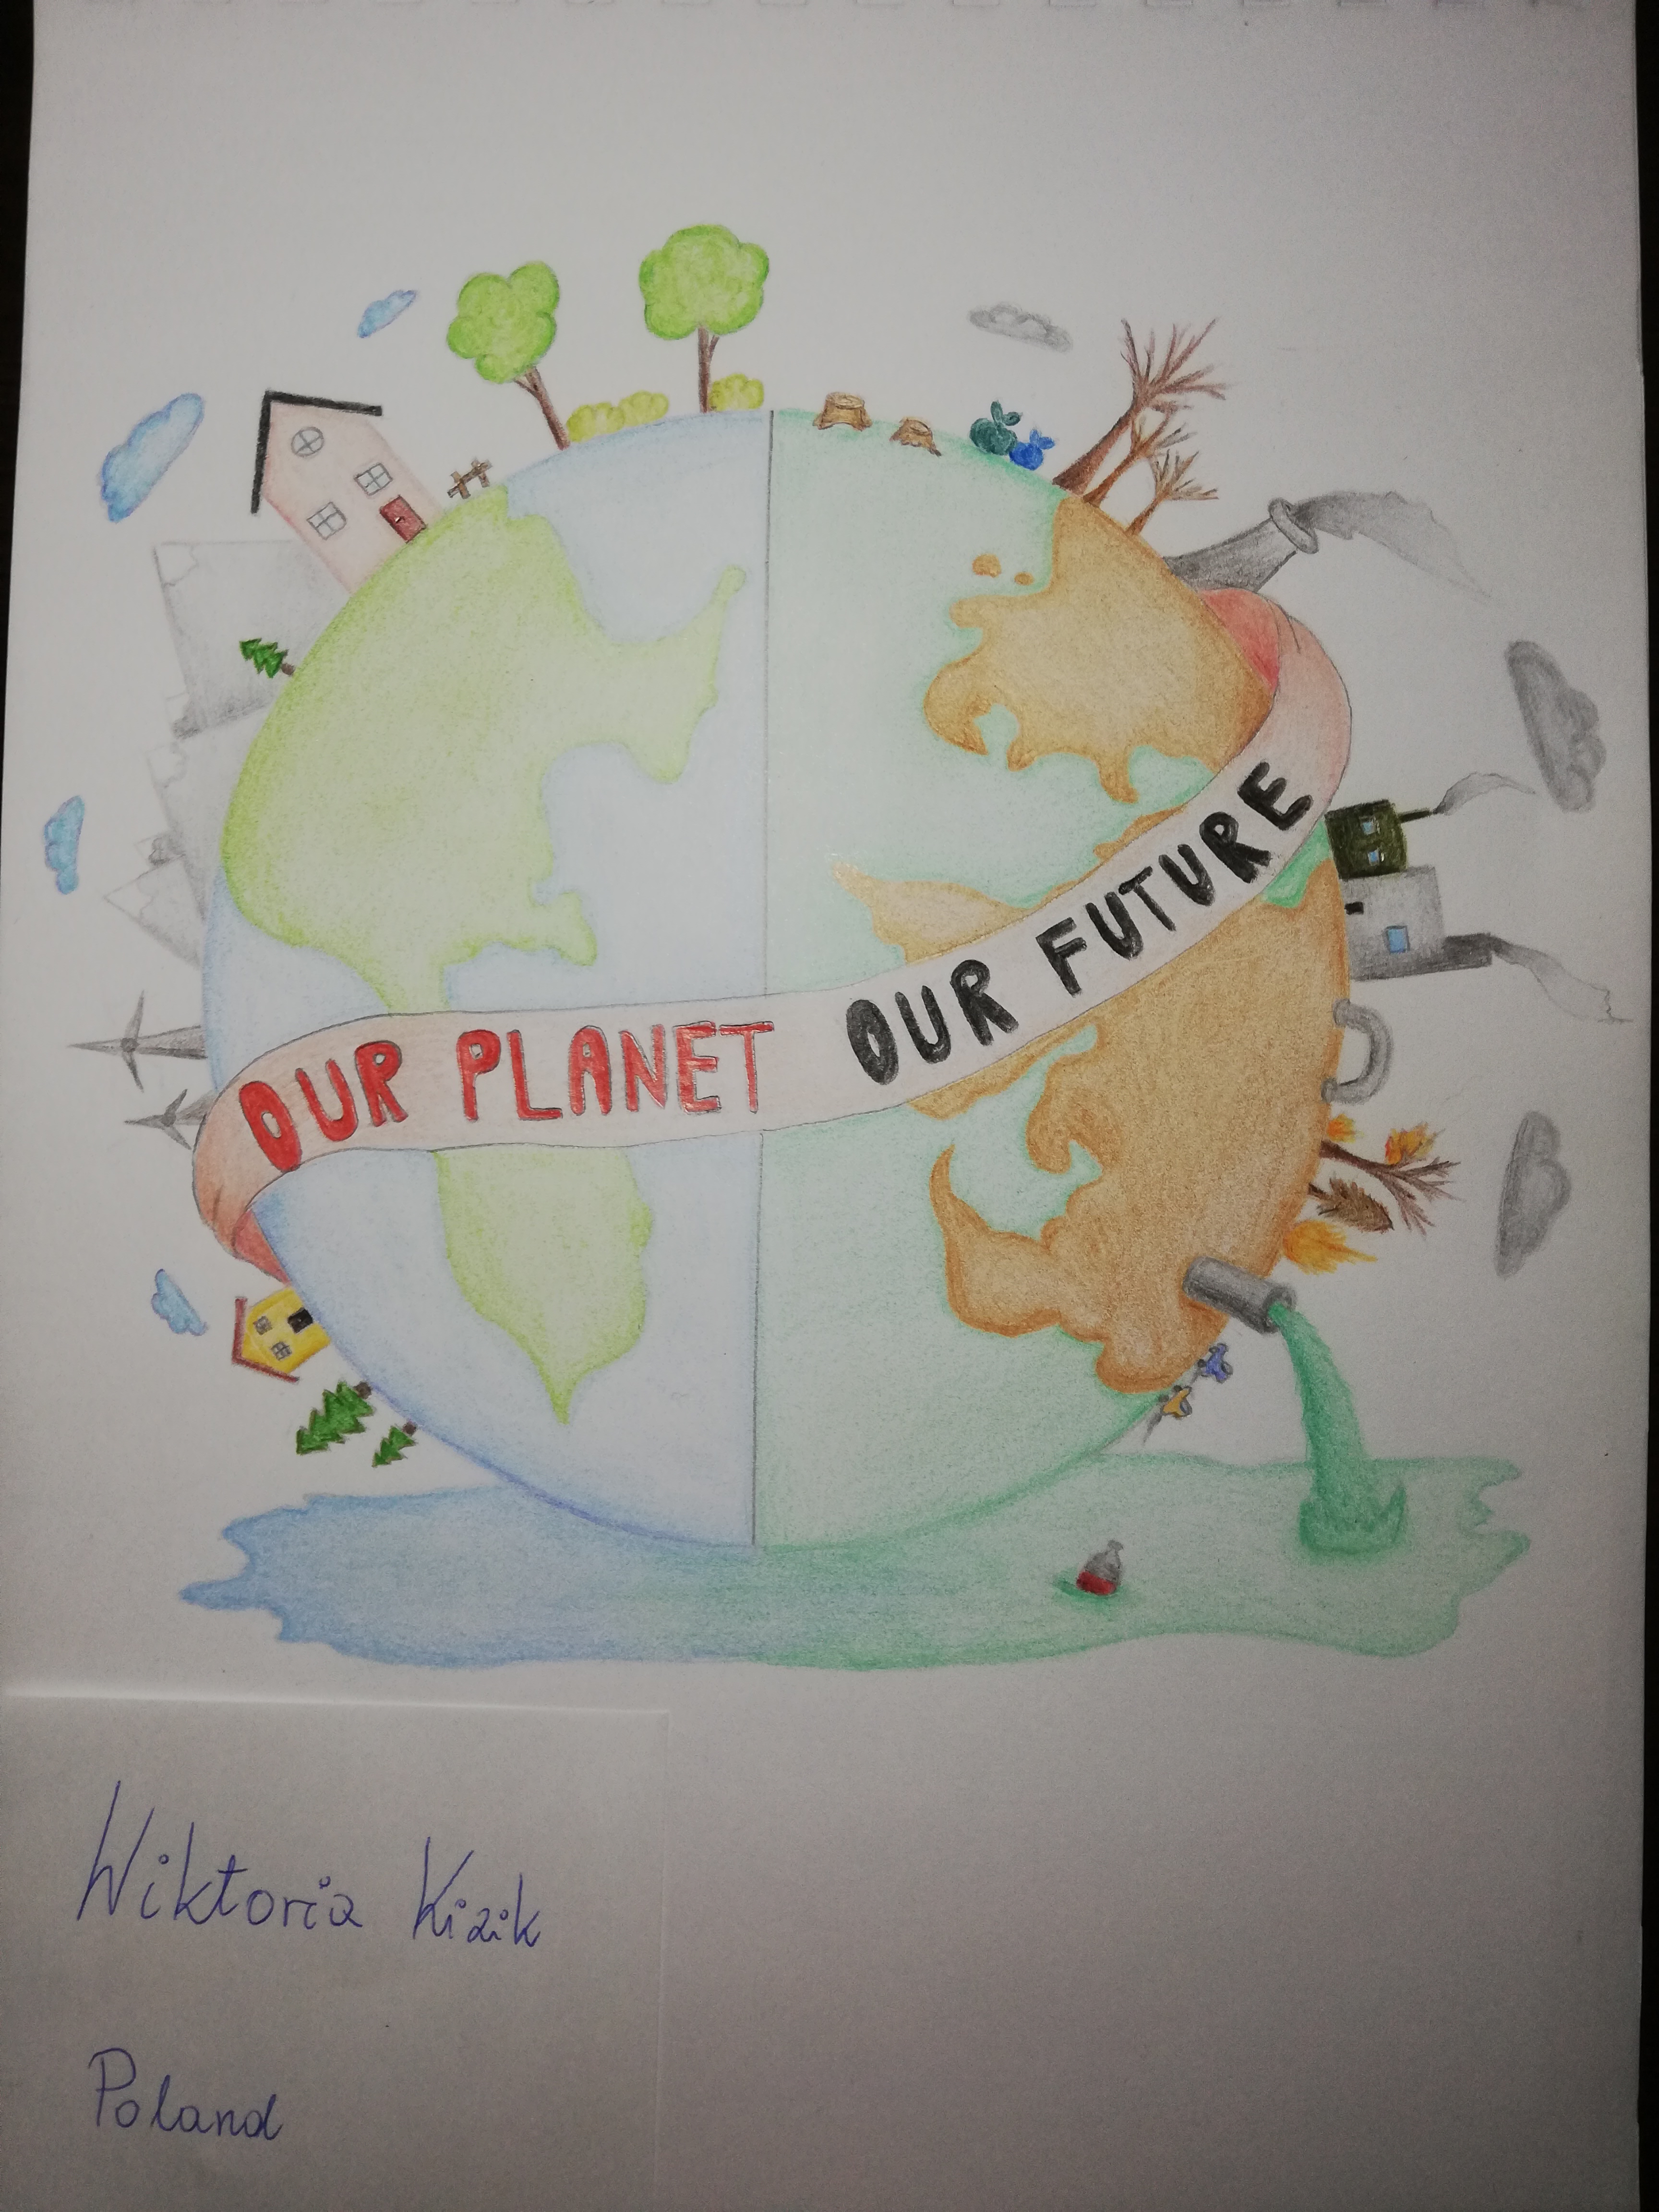 OUR PLANET OUR FUTURE
Wiktoria Kizik
Poland